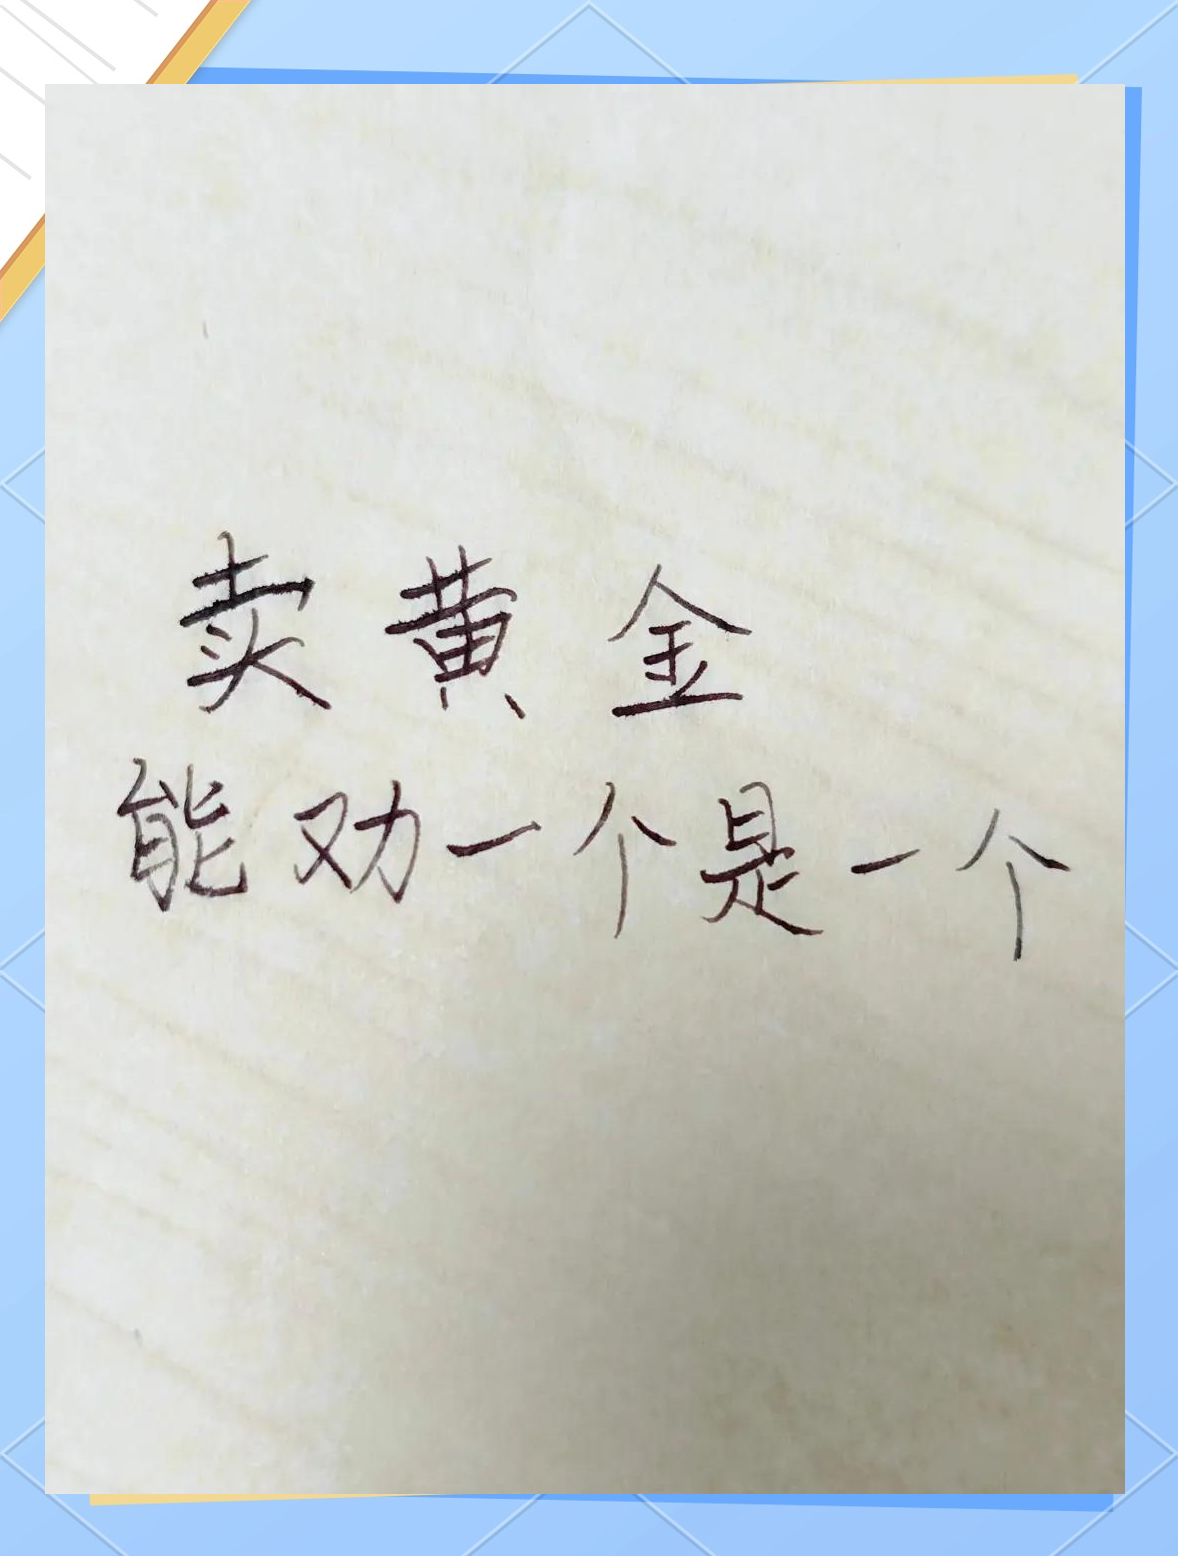 卖黄金
能劝一个是一个